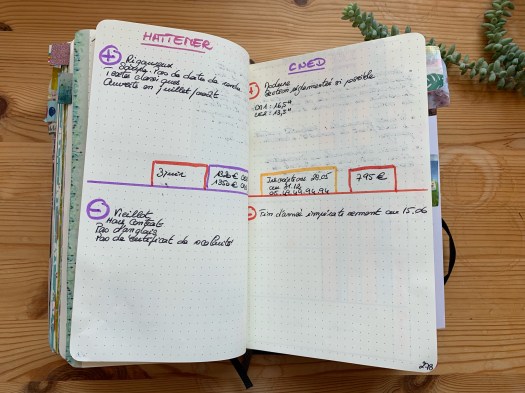 HATTEMER
+
Rigoureux
Souple. Pas de date de rendu
Textes classiques
Ouverte en juillet/août
3 juin
1320 € CM1
1350 €
-
Vieillot
Hors contrat
Pas d'anglais
Pas de certificat de scolarité
CNED
+
Moderne
Section réglementée si possible
CM1 : 16,5H
CE2 : 13,5H
Inscription au 28.05
au 31.12
05.49.49.94.94
795 €
-
Fin d'année impérativement au 15.06
298